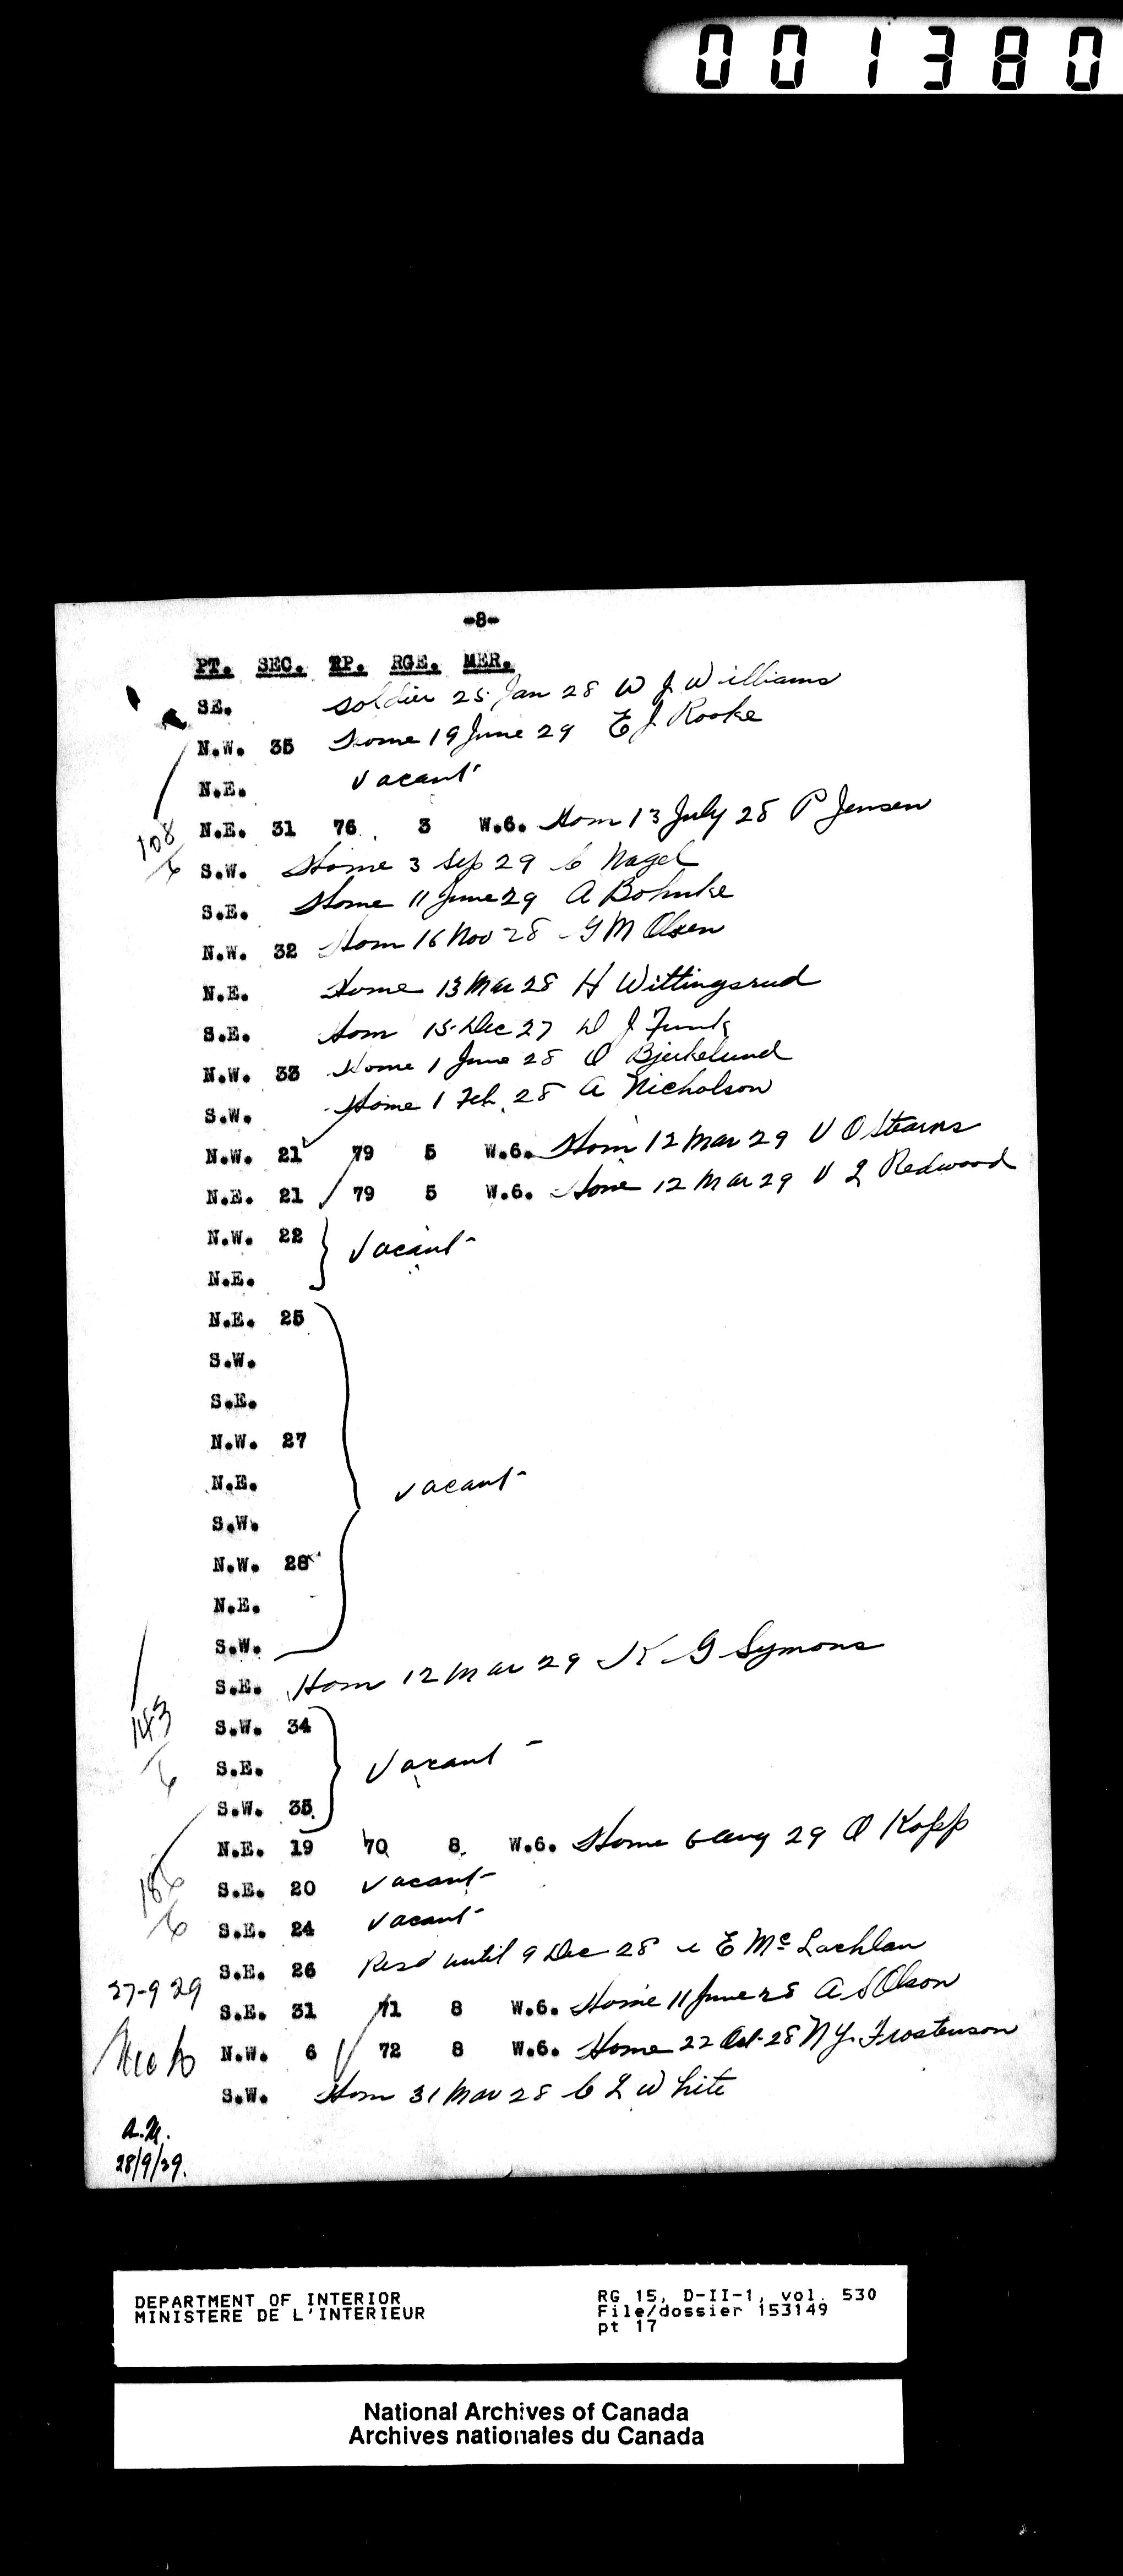 001380
-8-
PT. SEC. TP. RGE. MER.
SE. soldier 25 Jan 28 W J Williams
N.W. 35 Home 19 June 29 E J Rooke
N.E. vacant
N.E. 31 76 3 W.6. Hom 13 July 28 P Jensen
108/6
S.W. Home 3 Sep 29 C Nagel
S.E. Home 11 June 29 A Bohnke
N.W. 32 Hom 16 Nov 28 G M Olsen
N.E. Home 13 Mar 28 H Wittingsrud
S.E. Hom 15 Dec 27 D J Funk
N.W. 33 Home 1 June 28 O Bjerkelund
S.W. Home 1 Feb. 28 A Nicholson
N.W. 21 79 5 W.6. Hom 12 Mar 29 V O Stearns
N.E. 21 79 5 W.6. Home 12 Mar 29 V L Redwood
N.W. 22 vacant
N.E.
N.E. 25
S.W.
S.E.
N.W. 27
N.E. vacant
S.W.
N.W. 28
N.E.
S.W.
S.E. Hom 12 Mar 29 K G Symons
143/6
S.W. 34
S.E. vacant
S.W. 35
N.E. 19 70 8 W.6. Home 6 Aug 29 O Kopp
S.E. 20 vacant
186/6
S.E. 24 vacant
S.E. 26 Resd until 9 Dec 28 E McLachlan
27-9 29
S.E. 31 71 8 W.6. Home 11 June 28 A S Olson
N.W. 6 72 8 W.6. Home 22 Oct 28 N Y. Frostenson
S.W. Hom 31 Mar 28 C L White
A.M.
28/9/29.
DEPARTMENT OF INTERIOR
MINISTERE DE L'INTERIEUR
RG 15, D-II-1, vol. 530
File/dossier 153149
pt 17
National Archives of Canada
Archives nationales du Canada